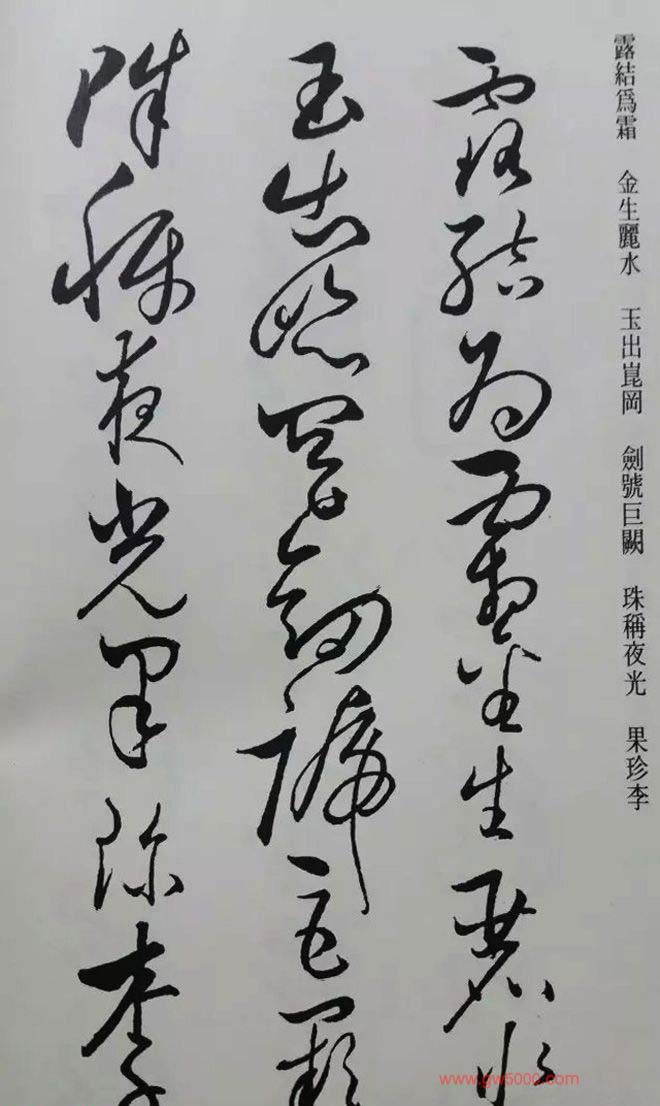 露結爲霜 金生麗水 玉出崑岡 劍號巨闕 珠稱夜光 果珍李
露結為霜金生麗水
玉出崑岡劍號巨闕
珠稱夜光果珍李
www.gw5000.com